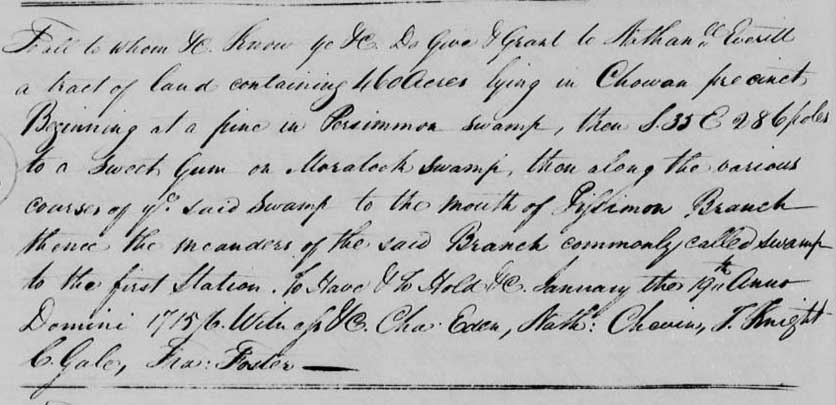 To all to whom &C. Know ye &C. Do Give & Grant to Nathan.ll Everitt
a tract of land containing 460 Acres lying in Chowan precinct
Beginning at a pine in Persimmon swamp, then S. 35 E 286 poles
to a sweet Gum on Moratock swamp, then along the various
courses of ye said Swamp to the mouth of Pissimon Branch
thence the meanders of the said Branch commonly called swamp
to the first Station. To Have & To Hold &C. January the 19th Anno
Domini 1715/6. Witness &C. Cha: Eden, Nath: Chevin, T. Knight
C. Gale, Fra: Foster